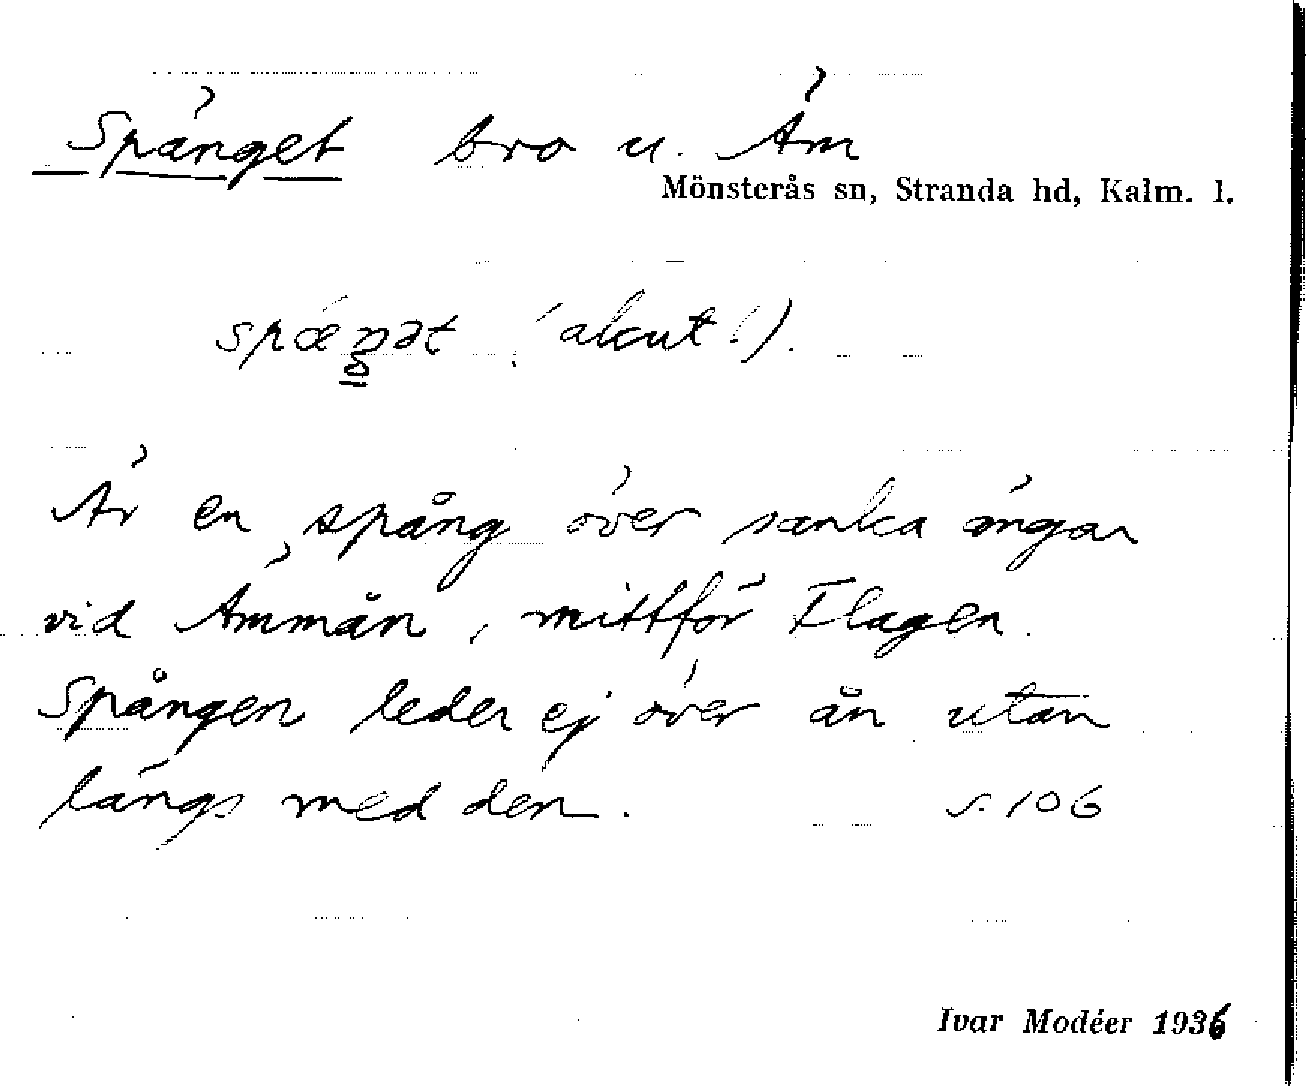 Spänget bro u. Äm
Mönsterås sn, Stranda hd, Kalm. l.
spæŋət (akut!).
Är en spång över sanka ängar
vid Ämmån, mittför Flagen.
Spången leder ej över ån utan
längs med den. s. 106
Ivar Modéer 1936